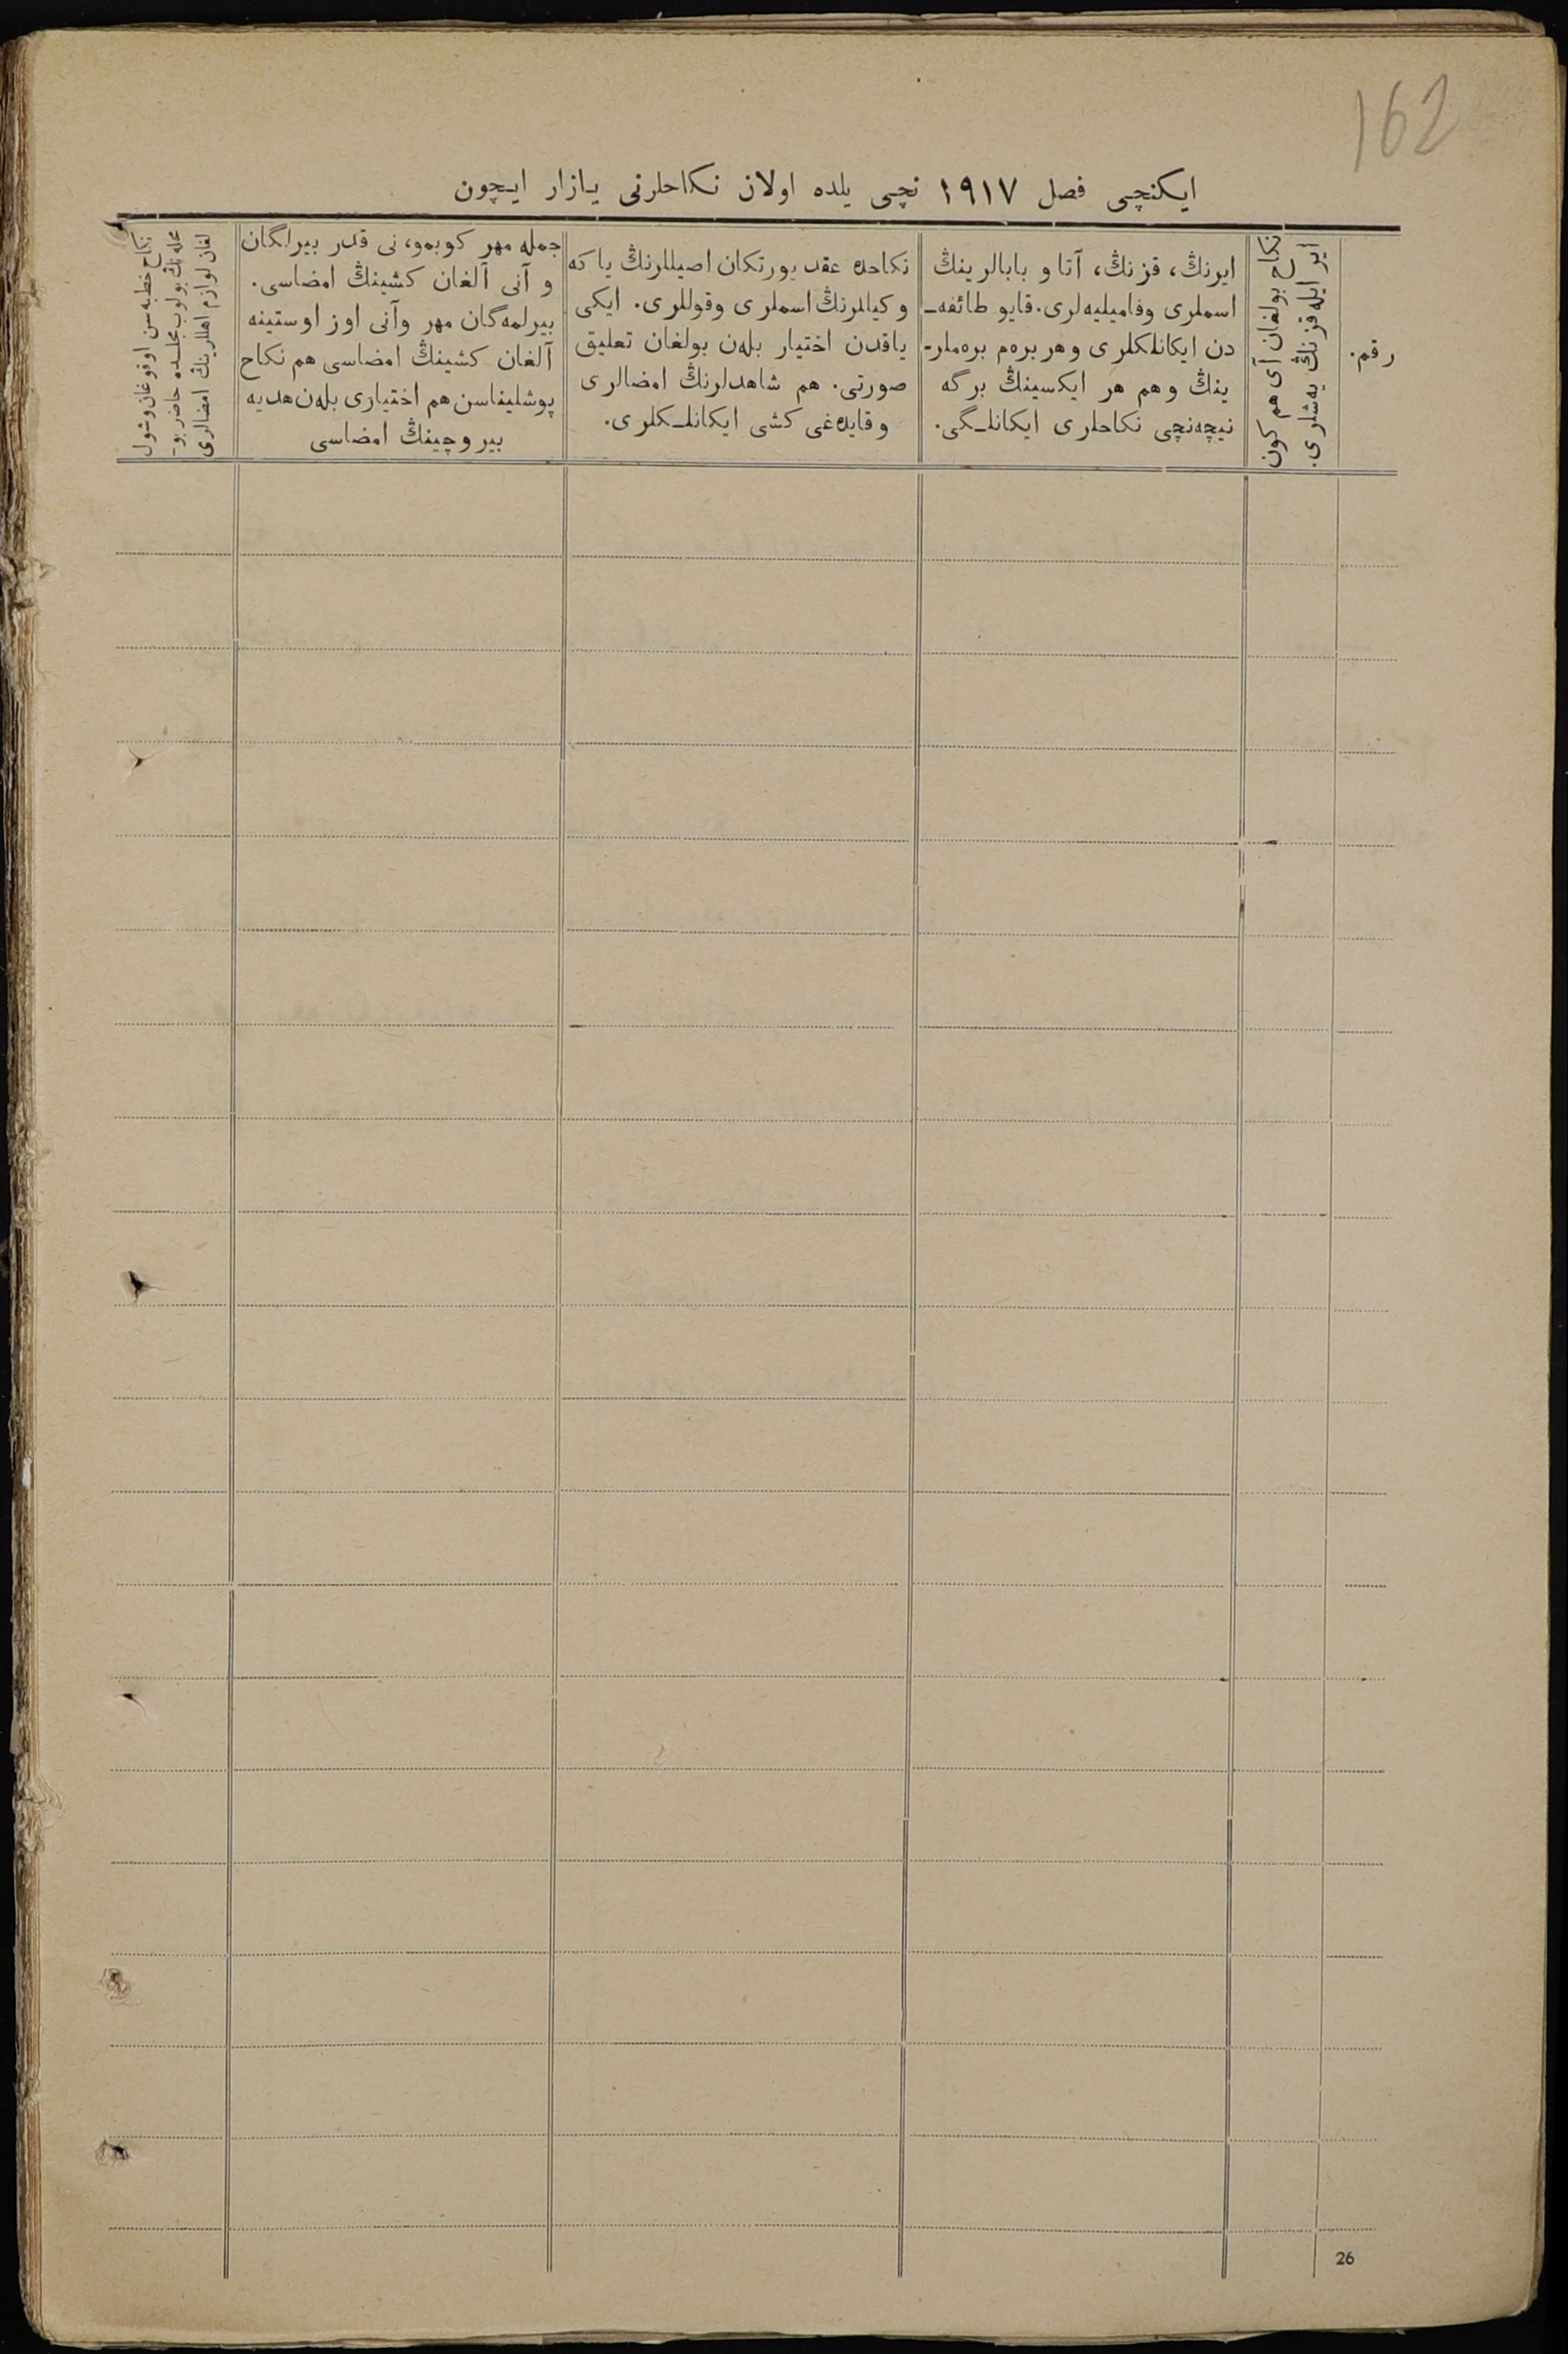 162
ایکنچی فصل ۱۹۱۷ نچی یلده اولان نکاحلرنی یازار ایچون
رقم.
ایر ایله قزنڭ یه‌شلری.
نکاح بولغان آی هم کون
ایرنڭ، قزنڭ، آتا و بابالرینڭ
اسملری وفامیلیه‌لری. قایو طائفه‌ـ
دن ایکانلکلری وهر بره‌م بره‌ملرـ
ینڭ وهم هر ایکسینڭ برگه
نیچه‌نچی نکاحلری ایکانلـگی.
نکاحده عقد یورتکان اصیللرنڭ یا که
وکیللرنڭ اسملری وقوللری. ایکی
یاقدن اختیار بله‌ن بولغان تعلیق
صورتی. هم شاهدلرنڭ امضالری
وقایده‌غی کشی ایکانلـکلری.
جمله مهر کوبمو، نی قدر بیرلگان
و آنی آلغان کشینڭ امضاسی.
بیرلمه‌گان مهر وآنی اوز اوستینه
آلغان کشینڭ امضاسی هم نکاح
پوشلیناسن هم اختیاری بله‌ن هدیه
بیروچینڭ امضاسی
نکاح خطبه‌سن اوقوغان وشول
محله‌نڭ بولوب مجلسده حاضر بوـ
لغان لوازم اهللرینڭ امضالری
26